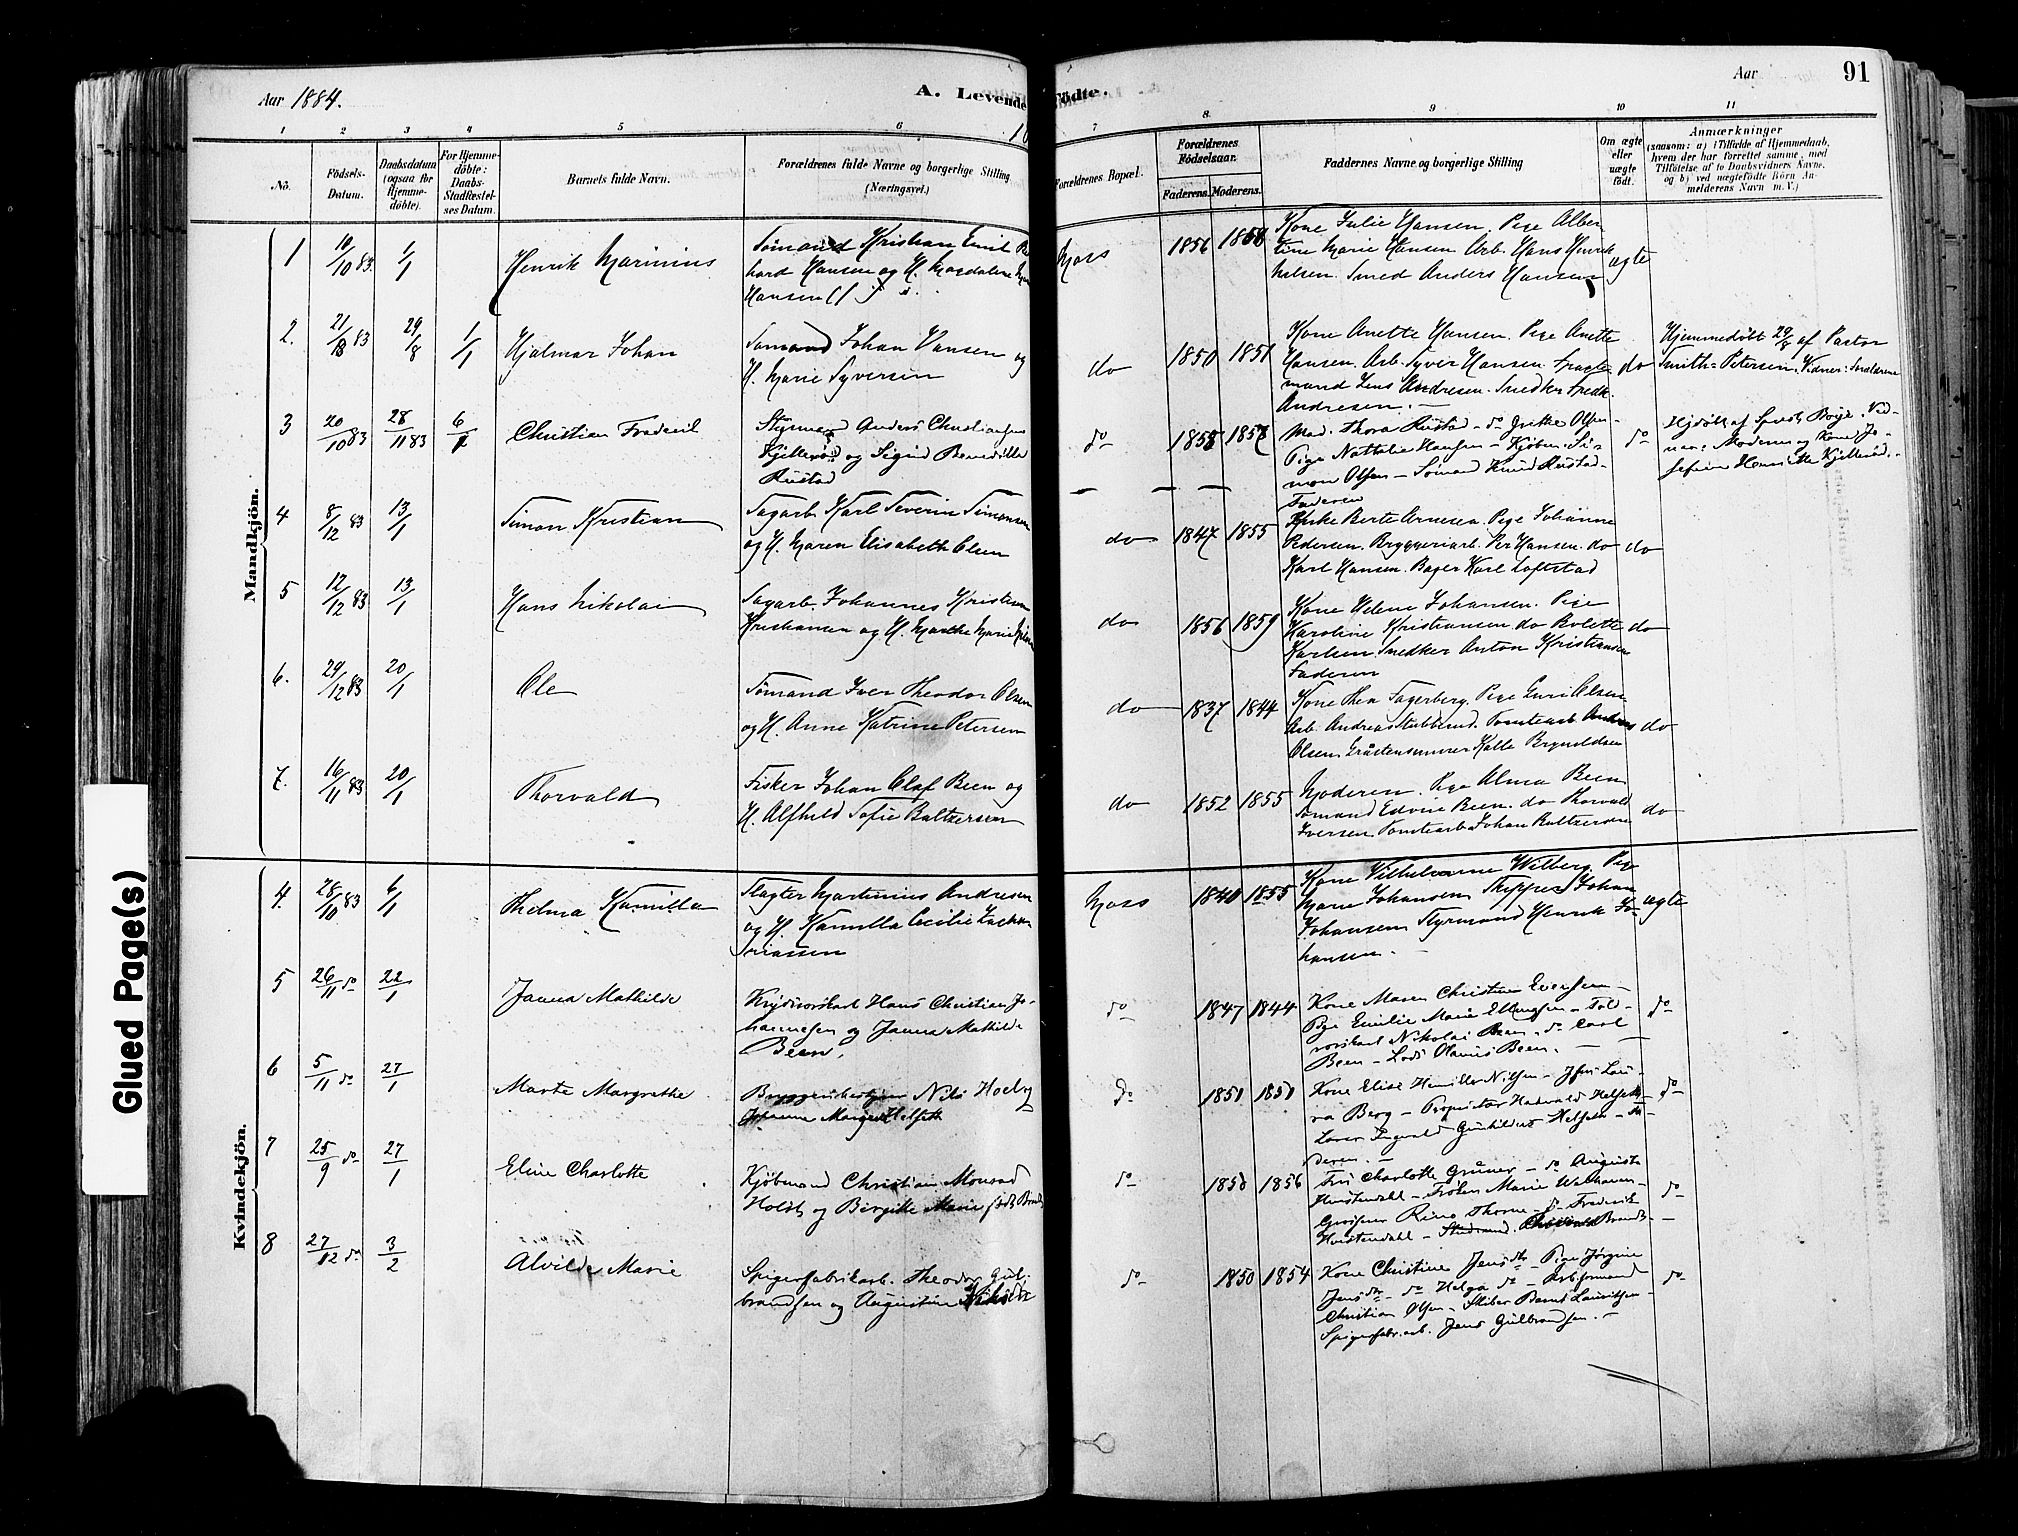 Aar 1884.
A. Levende
Födte.
Aar
91
1 2 3 4 5 6 7 8 9 10 11
No.
Födsels-
Datum.
Daabsdatum
(ogsaa for
Hjemme-
döbte).
For Hjemme-
döbte:
Daabs-
Stadfæstel-
ses Datum.
Barnets fulde Navn.
Forældrenes fulde Navne og borgerlige Stilling
(Næringsvei.)
Forældrenes Bopæl.
Forældrenes
Födselsaar.
Faderens. Moderens.
Faddernes Navne og borgerlige Stilling
Om ægte
eller
uægte
født.
Anmærkninger
(saasom: a) i Tilfælde af Hjemmedaab,
hvem der har forrettet samme, med
Tilföielse af to Daabsvidners Navne,
og b) ved uægtefödte Börn An-
melderens Navn m. V.)
Mandkjön.
1 10/10 83 1/1 Henrik Marinius
Sömand Kristian Emil
hard Hansen og H. Magdalene
Hansen
Moss 1856
Kone Julie Hansen. Pige Alber
tine Marie Hansen Arb. Hans Henrik
Nelsen. Smed Anders Hansen
ægte
2. 21/ 83 29/8 1/1 Hjalmar Johan
Sömand Johan Hansen og
H. Marie Syversen
do 1850 1851
Kone Anette Hansen. Pige Anette
Hansen. Arb. Syver Hansen.
mand Jens Andresen. Snedker Fredk
Andresen.
do
Hjemmedøbt 29/8 af Pastor
Smith-Petersen. Vidner: Foreldrene
3 20/10 83 28/11 83 6/1 Christian Frederik
Styrmand Anders Christiansen
Kjellerød og Sigrid Benedikte
Rustad
do 1855 1857
Mad. Thora Rustad - do Grethe Olsen
Pige Nathalie Hansen - Kjøbm. Si-
mon Olsen - Sömand Knud Rustad -
Faderen
do
4 8/12 83 13/1 Simon Kristian
Sagarb Karl Severin Simonsen
og H. Maren Elisabeth Olsen
do 1847 1855
Enke Berte Arnesen. Pige Johanne
Pedersen. Bryggeriarb. Per Hansen. do
Karl Hansen. Bager Karl Loftstad
do
5 12/12 83 13/1 Hans Nikolai
Sagarb. Johannes Kristian
Kristiansen og H. Marthe Marie
do 1856 1859
Kone Helene Johansen. Pige
Karoline Kristiansen do Bolette
Karlsen Snedker Anton Kristiansen
Faderen
do
6. 29/12 83 20/1 Ole
Sömand Iver Theodor Olsen
og H. Anne Katrine Petersen
do 1837 1844
Kone Thea Fagerberg. Pige Olsen
Arb. Andreas Stubberud. Tomtearb Andreas
Olsen Kalle Brynildsen
do
7. 16/11 83 20/1 Thorvald
Fisker Johan Olaf Been og
H. Alfhild Sofie Baltzersen
do 1852 1855
Moderen. Pige Alma Been
Sömand Edvin Been. do Thorvald
Iversen Tomtearb Johan Baltzersen
do
Kvindekjön.
4. 28/10 83 6/1 Thelma Kamilla
Slagter Martinius Andresen
og H. Kamilla Cecilie Zacha
riassen
Moss 1840 1855
Kone Vilhelmine Wilberg Pige
Marie Johansen Skipper Johan
Johansen Styrmand Henrik Jo-
hansen.
ægte
5 26/11 do 22/1 Janna Mathilde
Krydsvorskarl Hans Christian Jo-
hannesen og Janna Mathilde
Been.
do 1847 1844
Kone Maren Christine Evensen -
Pige Emilie Marie Ellingsen - Tol-
rorskarl Nikolai Been - do Carl
Been - Lods Olanus Been.
do
6 5/11 do 27/1 Marta Margrethe
Bryggeribestyrer Nils Hoelog
Johanne Margrete Helseth
do 1851 1851
Kone Elise Nilsen - Jfr Lau-
ra Berg - Proprietær Hadvald Helseth
Lærer Ingvald Helseth - Fa-
deren. -
do
7 25/9 do 27/1 Eline Charlotte
Kjöbmand Christian Monrad
Holst og Birgitte Marie født Brandt
do 1850 1856
Fru Charlotte Grüner - do Augusta
Hvistendahl - Frøken Marie
Grosserer Rino Thorne - do Frederik
Hvistendahl - Brandt -
do
8 27/12 do 3/2 Alvilde Marie
Spigerfabrikarb. Theodor Gul-
brandsen og Augustine
do 1850 1854
Kone Christine Jensdtr - Pige Jørgine
Jensdtr - do Helga do - Arbformand
Christian Olsen - Skiber Bernt Lauritsen -
Spigerfabr.arb. Jens Gulbrandsen. -
do
Glued Page(s)